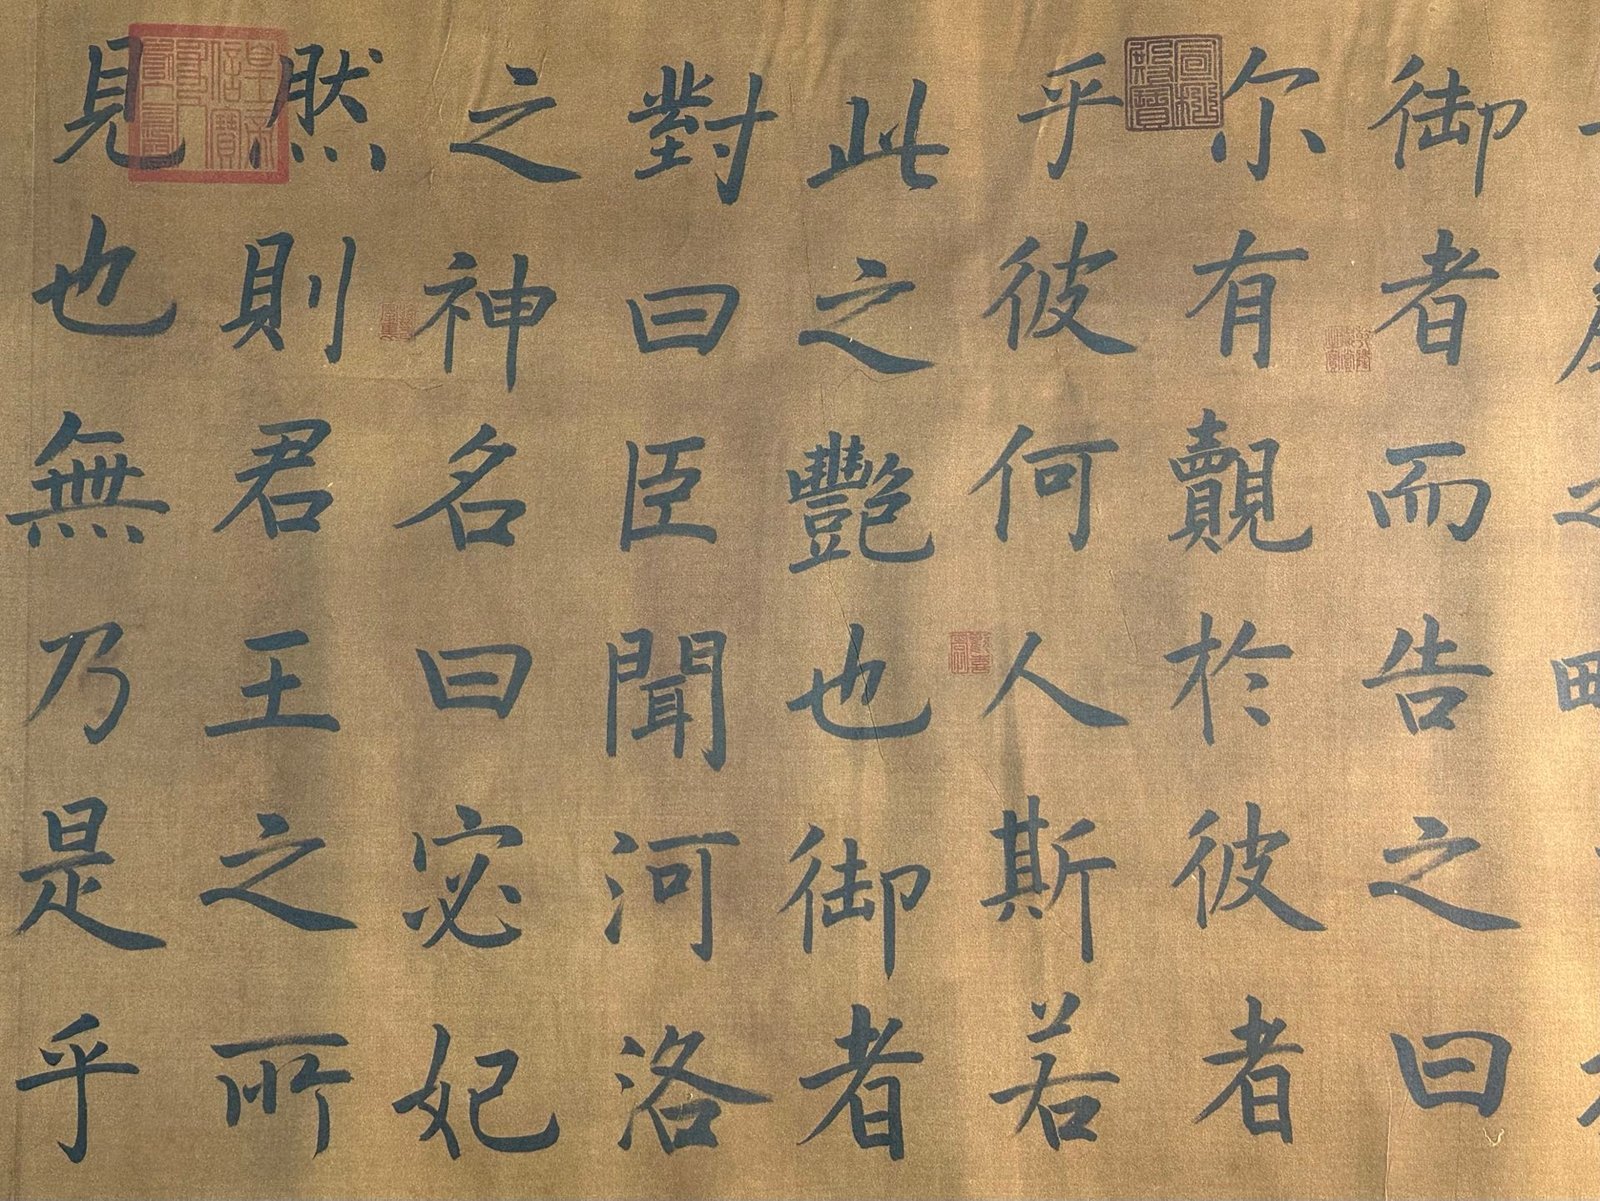 御者而告之曰
尔有覿於彼者
乎彼何人斯若
此之艷也御者
對曰臣聞河洛
之神名曰宓妃
然則君王之所
見也無乃是乎